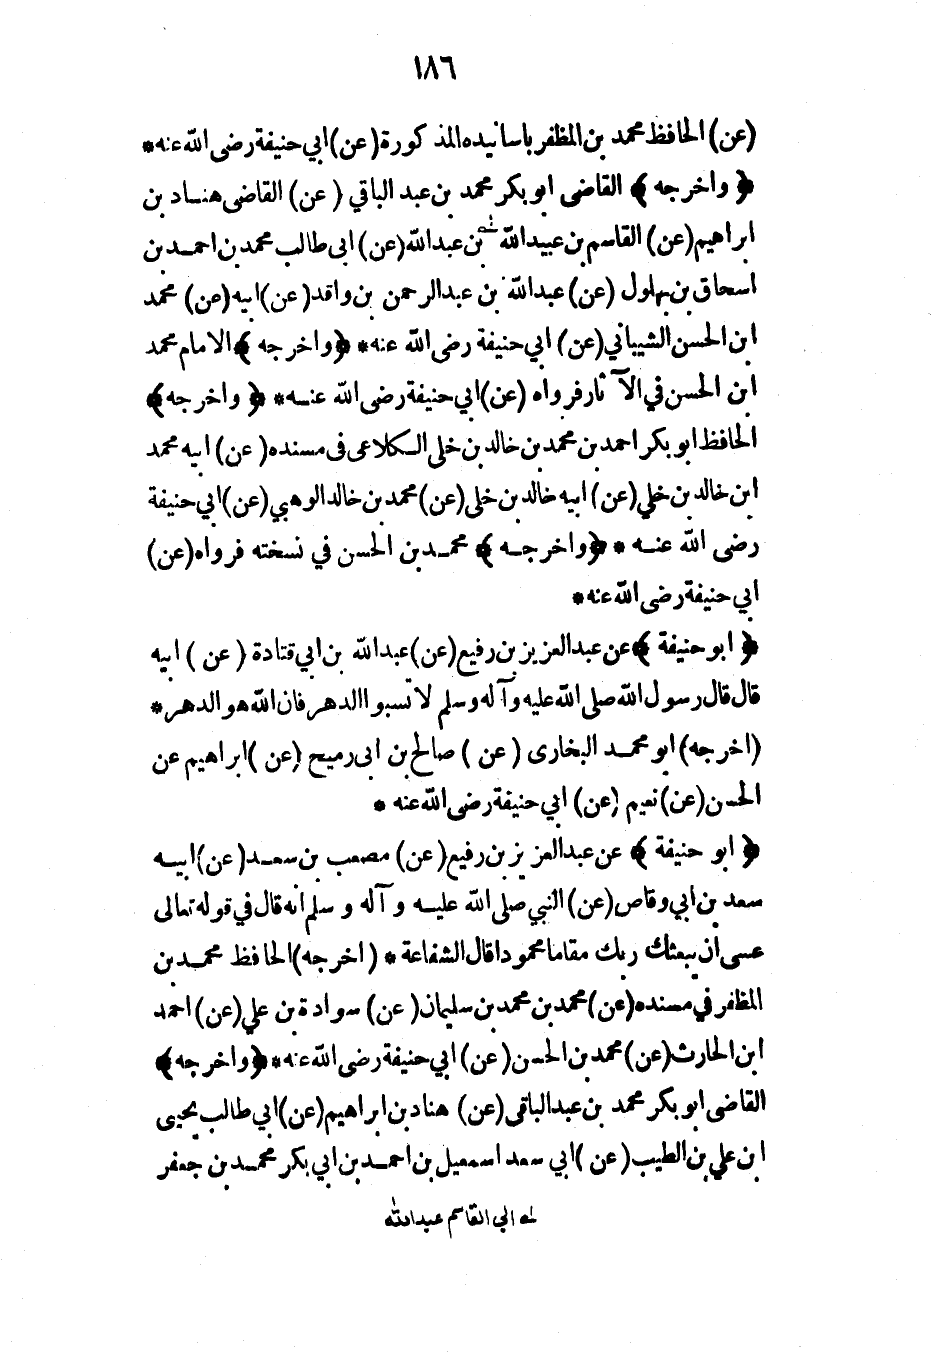 ١٨٦
(عن) الحافظ محمد بن المظفر باسانيده المذكورة (عن) ابي حنيفة رضى الله عنه *
﴿ واخرجه ﴾ القاضى ابو بكر محمد بن عبد الباقي (عن) القاضى هناد بن
ابراهيم (عن) القاسم بن عبيد الله بن عبد الله (عن) ابى طالب محمد بن احمد بن
اسحاق بن بهلول (عن) عبد الله بن عبد الرحمن بن واقد (عن) ابيه (عن) محمد
ابن الحسن الشيباني (عن) ابي حنيفة رضى الله عنه * ﴿ واخرجه ﴾ الامام محمد
ابن الحسن في الآثار فرواه (عن) ابي حنيفة رضى الله عنه * ﴿ واخرجه ﴾
الحافظ ابو بكر احمد بن محمد بن خالد بن خلى الكلاعى فى مسنده (عن) ابيه محمد
ابن خالد بن خلي (عن) ابيه خالد بن خلى (عن) محمد بن خالد الوهبي (عن) ابي حنيفة
رضى الله عنه * ﴿ واخرجه ﴾ محمد بن الحسن في نسخته فرواه (عن)
ابي حنيفة رضى الله عنه *
﴿ ابو حنيفة ﴾ عن عبد العزيز بن رفيع (عن) عبد الله بن ابي قتادة (عن) ابيه
قال قال رسول الله صلى الله عليه وآله وسلم لا تسبوا الدهر فان الله هو الدهر *
(اخرجه) ابو محمد البخارى (عن) صالح بن ابى رميح (عن) ابراهيم عن
الحسن (عن) نعيم (عن) ابي حنيفة رضى الله عنه *
﴿ ابو حنيفة ﴾ عن عبد العزيز بن رفيع (عن) مصعب بن سعد (عن) ابيه
سعد بن ابي وقاص (عن) النبي صلى الله عليه وآله وسلم انه قال في قوله تعالى
عسى ان يبعثك ربك مقاما محمودا قال الشفاعة * (اخرجه) الحافظ محمد بن
المظفر في مسنده (عن) محمد بن محمد بن سليمان (عن) سوادة بن علي (عن) احمد
ابن الحارث (عن) محمد بن الحسن (عن) ابي حنيفة رضى الله عنه * ﴿ واخرجه ﴾
القاضى ابو بكر محمد بن عبد الباقى (عن) هناد بن ابراهيم (عن) ابي طالب يحيى
ابن علي بن الطيب (عن) ابي سعد اسمعيل بن احمد بن ابي بكر محمد بن جعفر
له ابي القاسم عبد الله